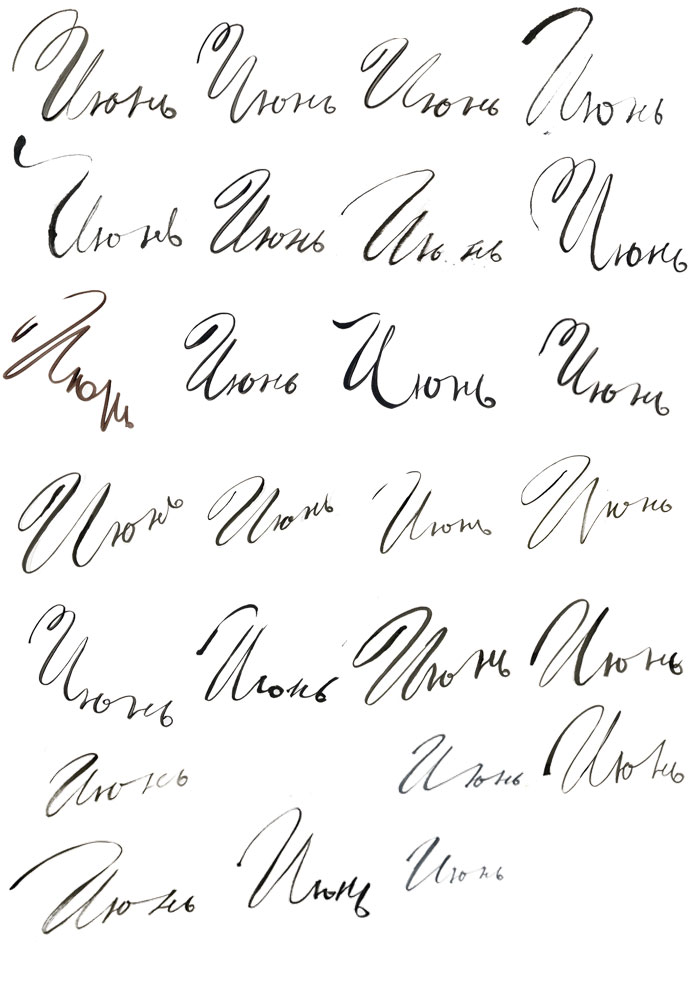 Июнь Июнь Июнь Июнь
Июнь Июнь Июнь Июнь
Июнь Июнь Июнь Июнь
Июнь Июнь Июнь Июнь
Июнь Июнь Июнь Июнь
Июнь Июнь Июнь
Июнь Июнь Июнь